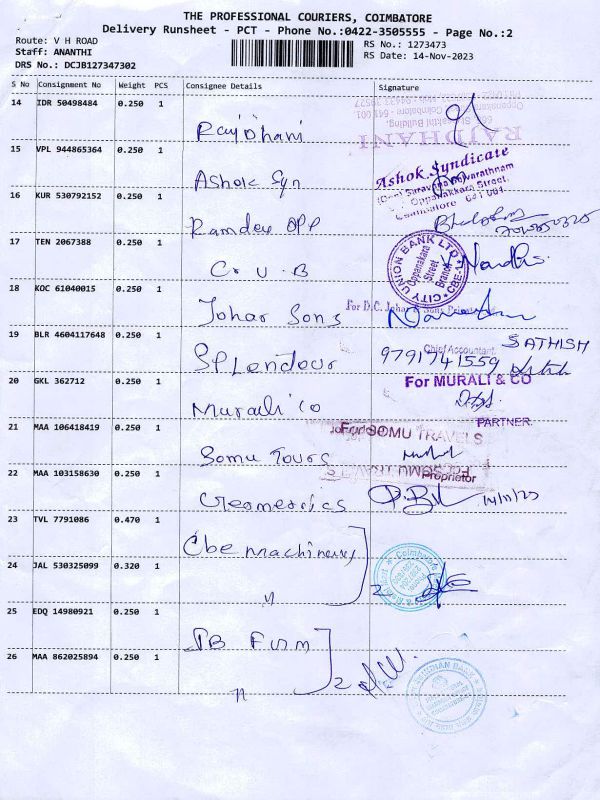 THE PROFESSIONAL COURIERS, COIMBATORE
Delivery Runsheet - PCT - Phone No.:0422-3505555 - Page No.:2
Route: V H ROAD
Staff: ANANTHI
DRS No.: DCJB127347302
RS No.: 1273473
RS Date: 14-Nov-2023
S No Consignment No Weight PCS Consignee Details Signature
14 IDR 50498484 0.250 1
Rajdhani
RAJDHANI
15 VPL 944865364 0.250 1
Ashok Syn
Ashok Syndicate
Oppanakkara Street,
Coimbatore 641 001
16 KUR 530792152 0.250 1
Ramdev opp
17 TEN 2067388 0.250 1
C.U.B
CITY UNION BANK LTD
Oppanakara
Street
Branch
CBE-1
Nandhi
18 KOC 61040015 0.250 1
Johar Sons
For D.C. Johar & Sons
19 BLR 4604117648 0.250 1
SPLendour
Chief Accountant.
SATHISH
9791741559
20 GKL 362712 0.250 1
Murali co
For MURALI & CO
PARTNER.
21 MAA 106418419 0.250 1
Somu Tours
For SOMU TRAVELS
22 MAA 103158630 0.250 1
Proprietor
14/11/23
23 TVL 7791086 0.470 1
Cbe machineries
24 JAL 530325099 0.320 1
"
2
25 EDQ 14980921 0.250 1
26 MAA 862025894 0.250 1
"
2
INDIAN BANK